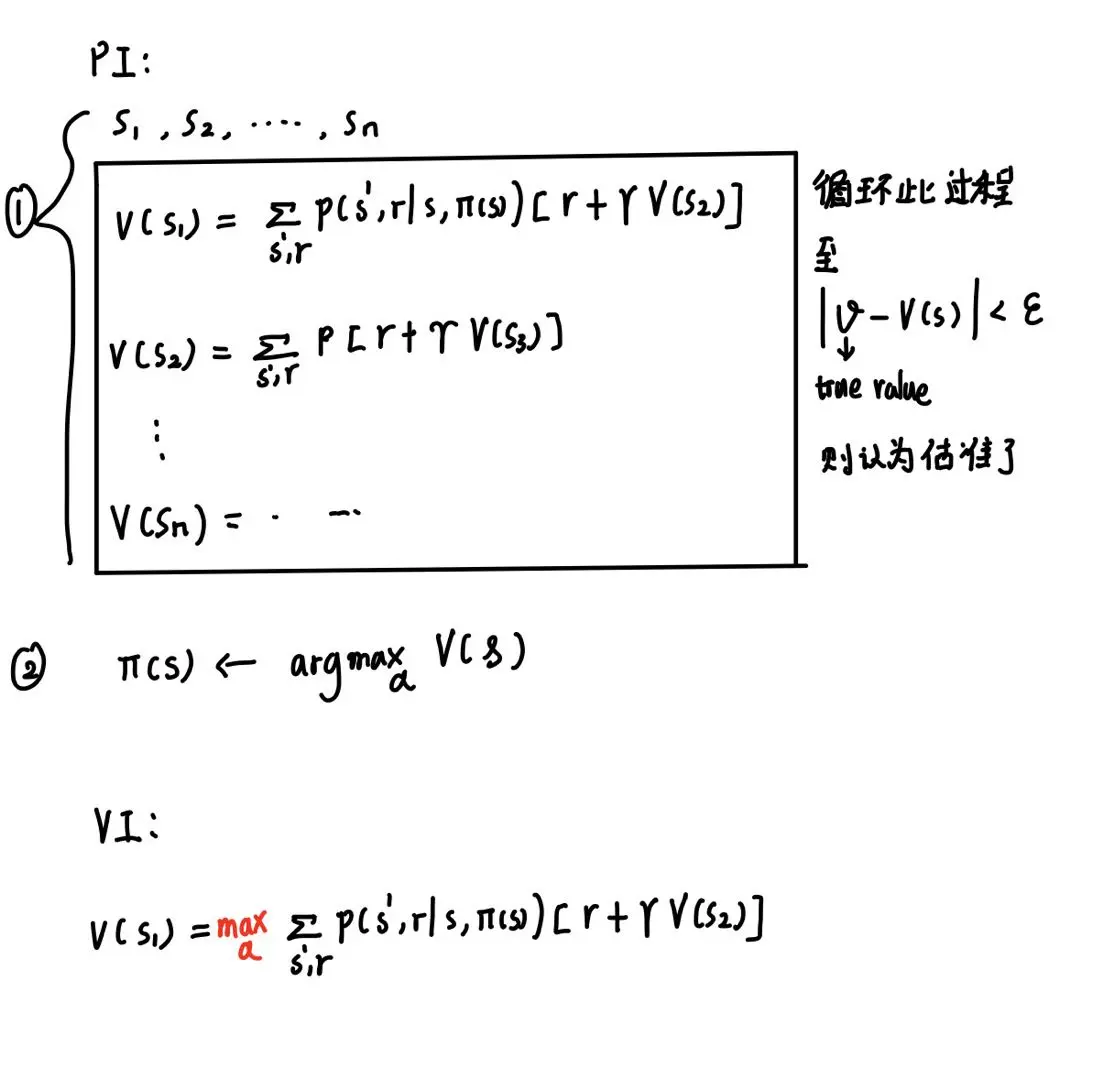 PI:
S₁ , S₂ , ····· , Sn
①
V(S₁) = Σ p(s',r|s,π(s)) [ r + γ V(S₂) ]
s',r
V(S₂) = Σ P [ r + γ V(S₃) ]
s',r
⋮
V(Sn) = · ···
循环此过程
至
|v - V(s)| < ε
↓
true value
则认为估准了
② π(s) ← argmax V(s)
a
VI:
V(S₁) = max Σ p(s',r|s,π(s)) [ r + γ V(S₂) ]
a s',r